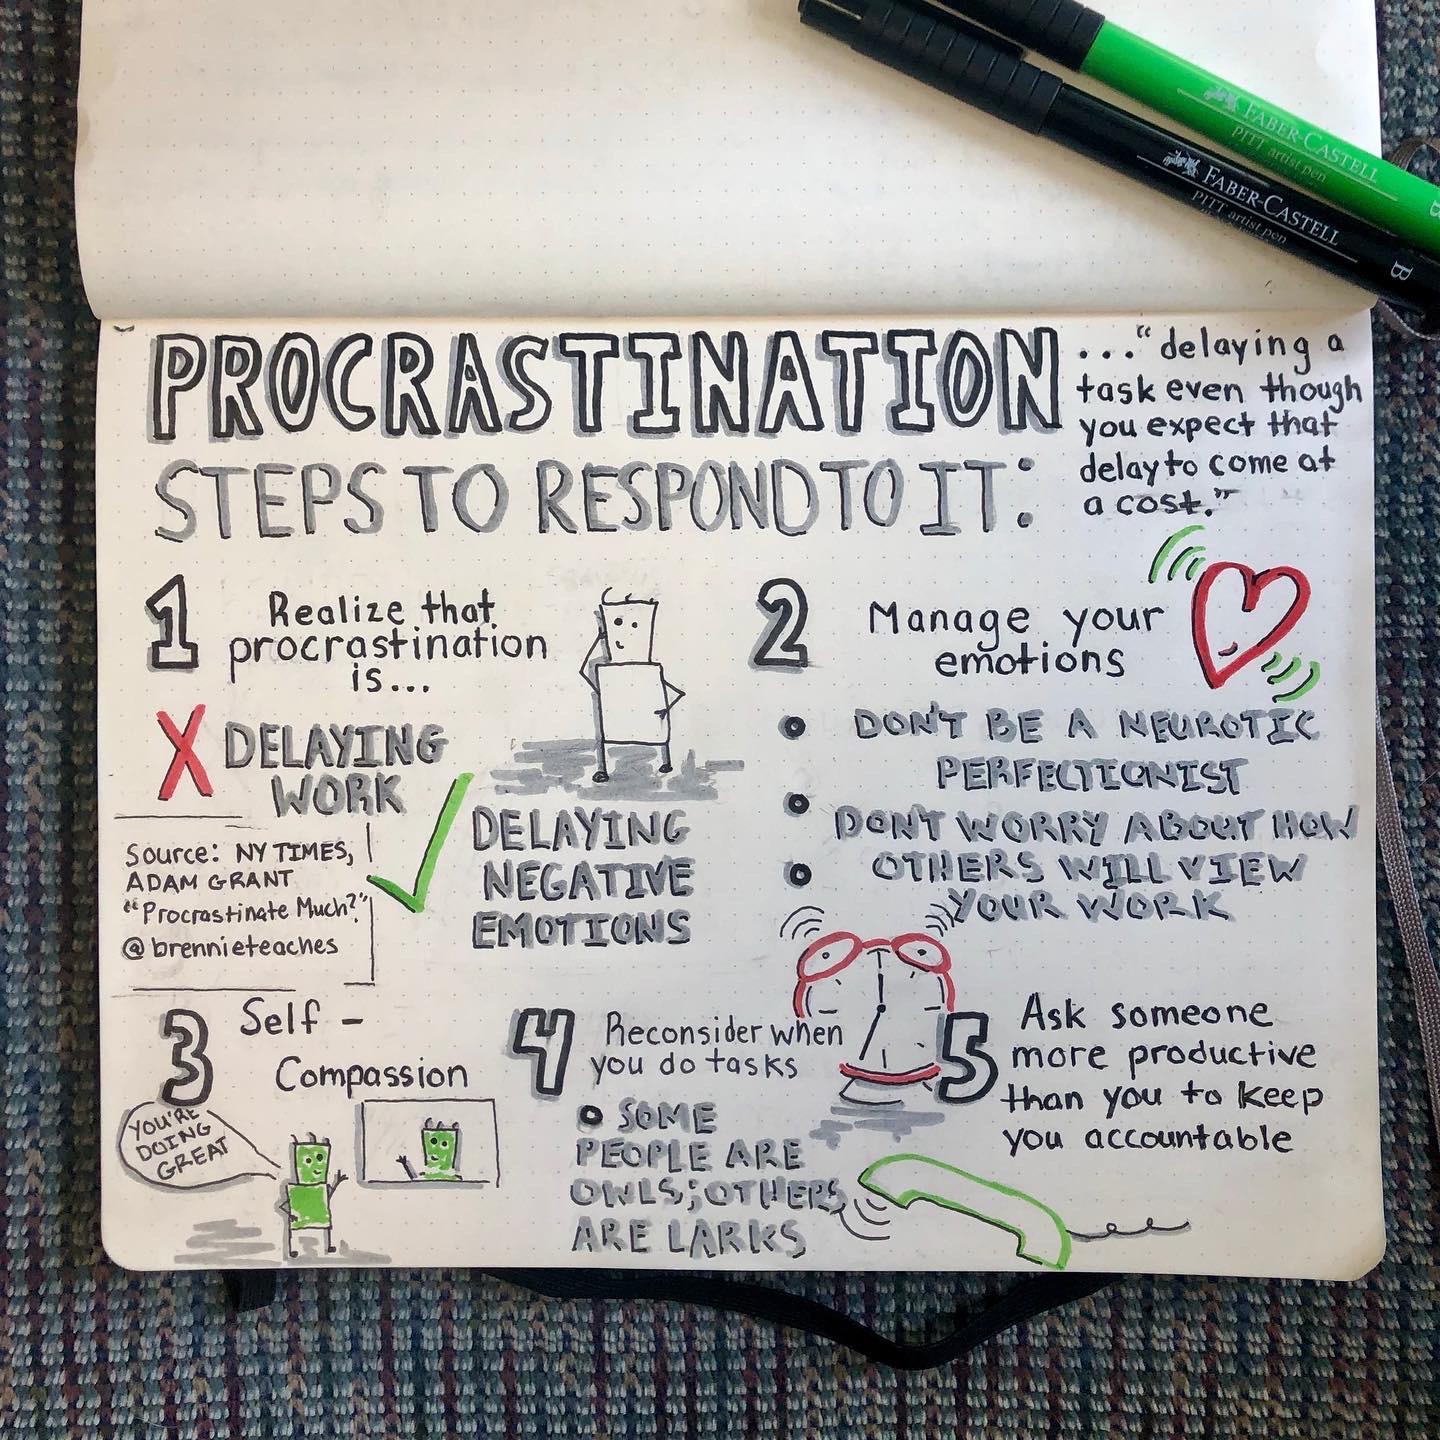 FABER-CASTELL
PITT artist pen
B
FABER-CASTELL
PITT artist pen
B
PROCRASTINATION
STEPS TO RESPOND TO IT:
..."delaying a
task even though
you expect that
delay to come at
a cost."
1
Realize that
procrastination
is...
X DELAYING
WORK
DELAYING
NEGATIVE
EMOTIONS
Source: NY TIMES,
ADAM GRANT
"Procrastinate Much?"
@brennieteaches
2
Manage your
emotions
DON'T BE A NEUROTIC
PERFECTIONIST
DON'T WORRY ABOUT HOW
OTHERS WILL VIEW
YOUR WORK
3
Self-
Compassion
YOU'RE
DOING
GREAT
4
Reconsider when
you do tasks
SOME
PEOPLE ARE
OWLS; OTHERS
ARE LARKS
5
Ask someone
more productive
than you to keep
you accountable